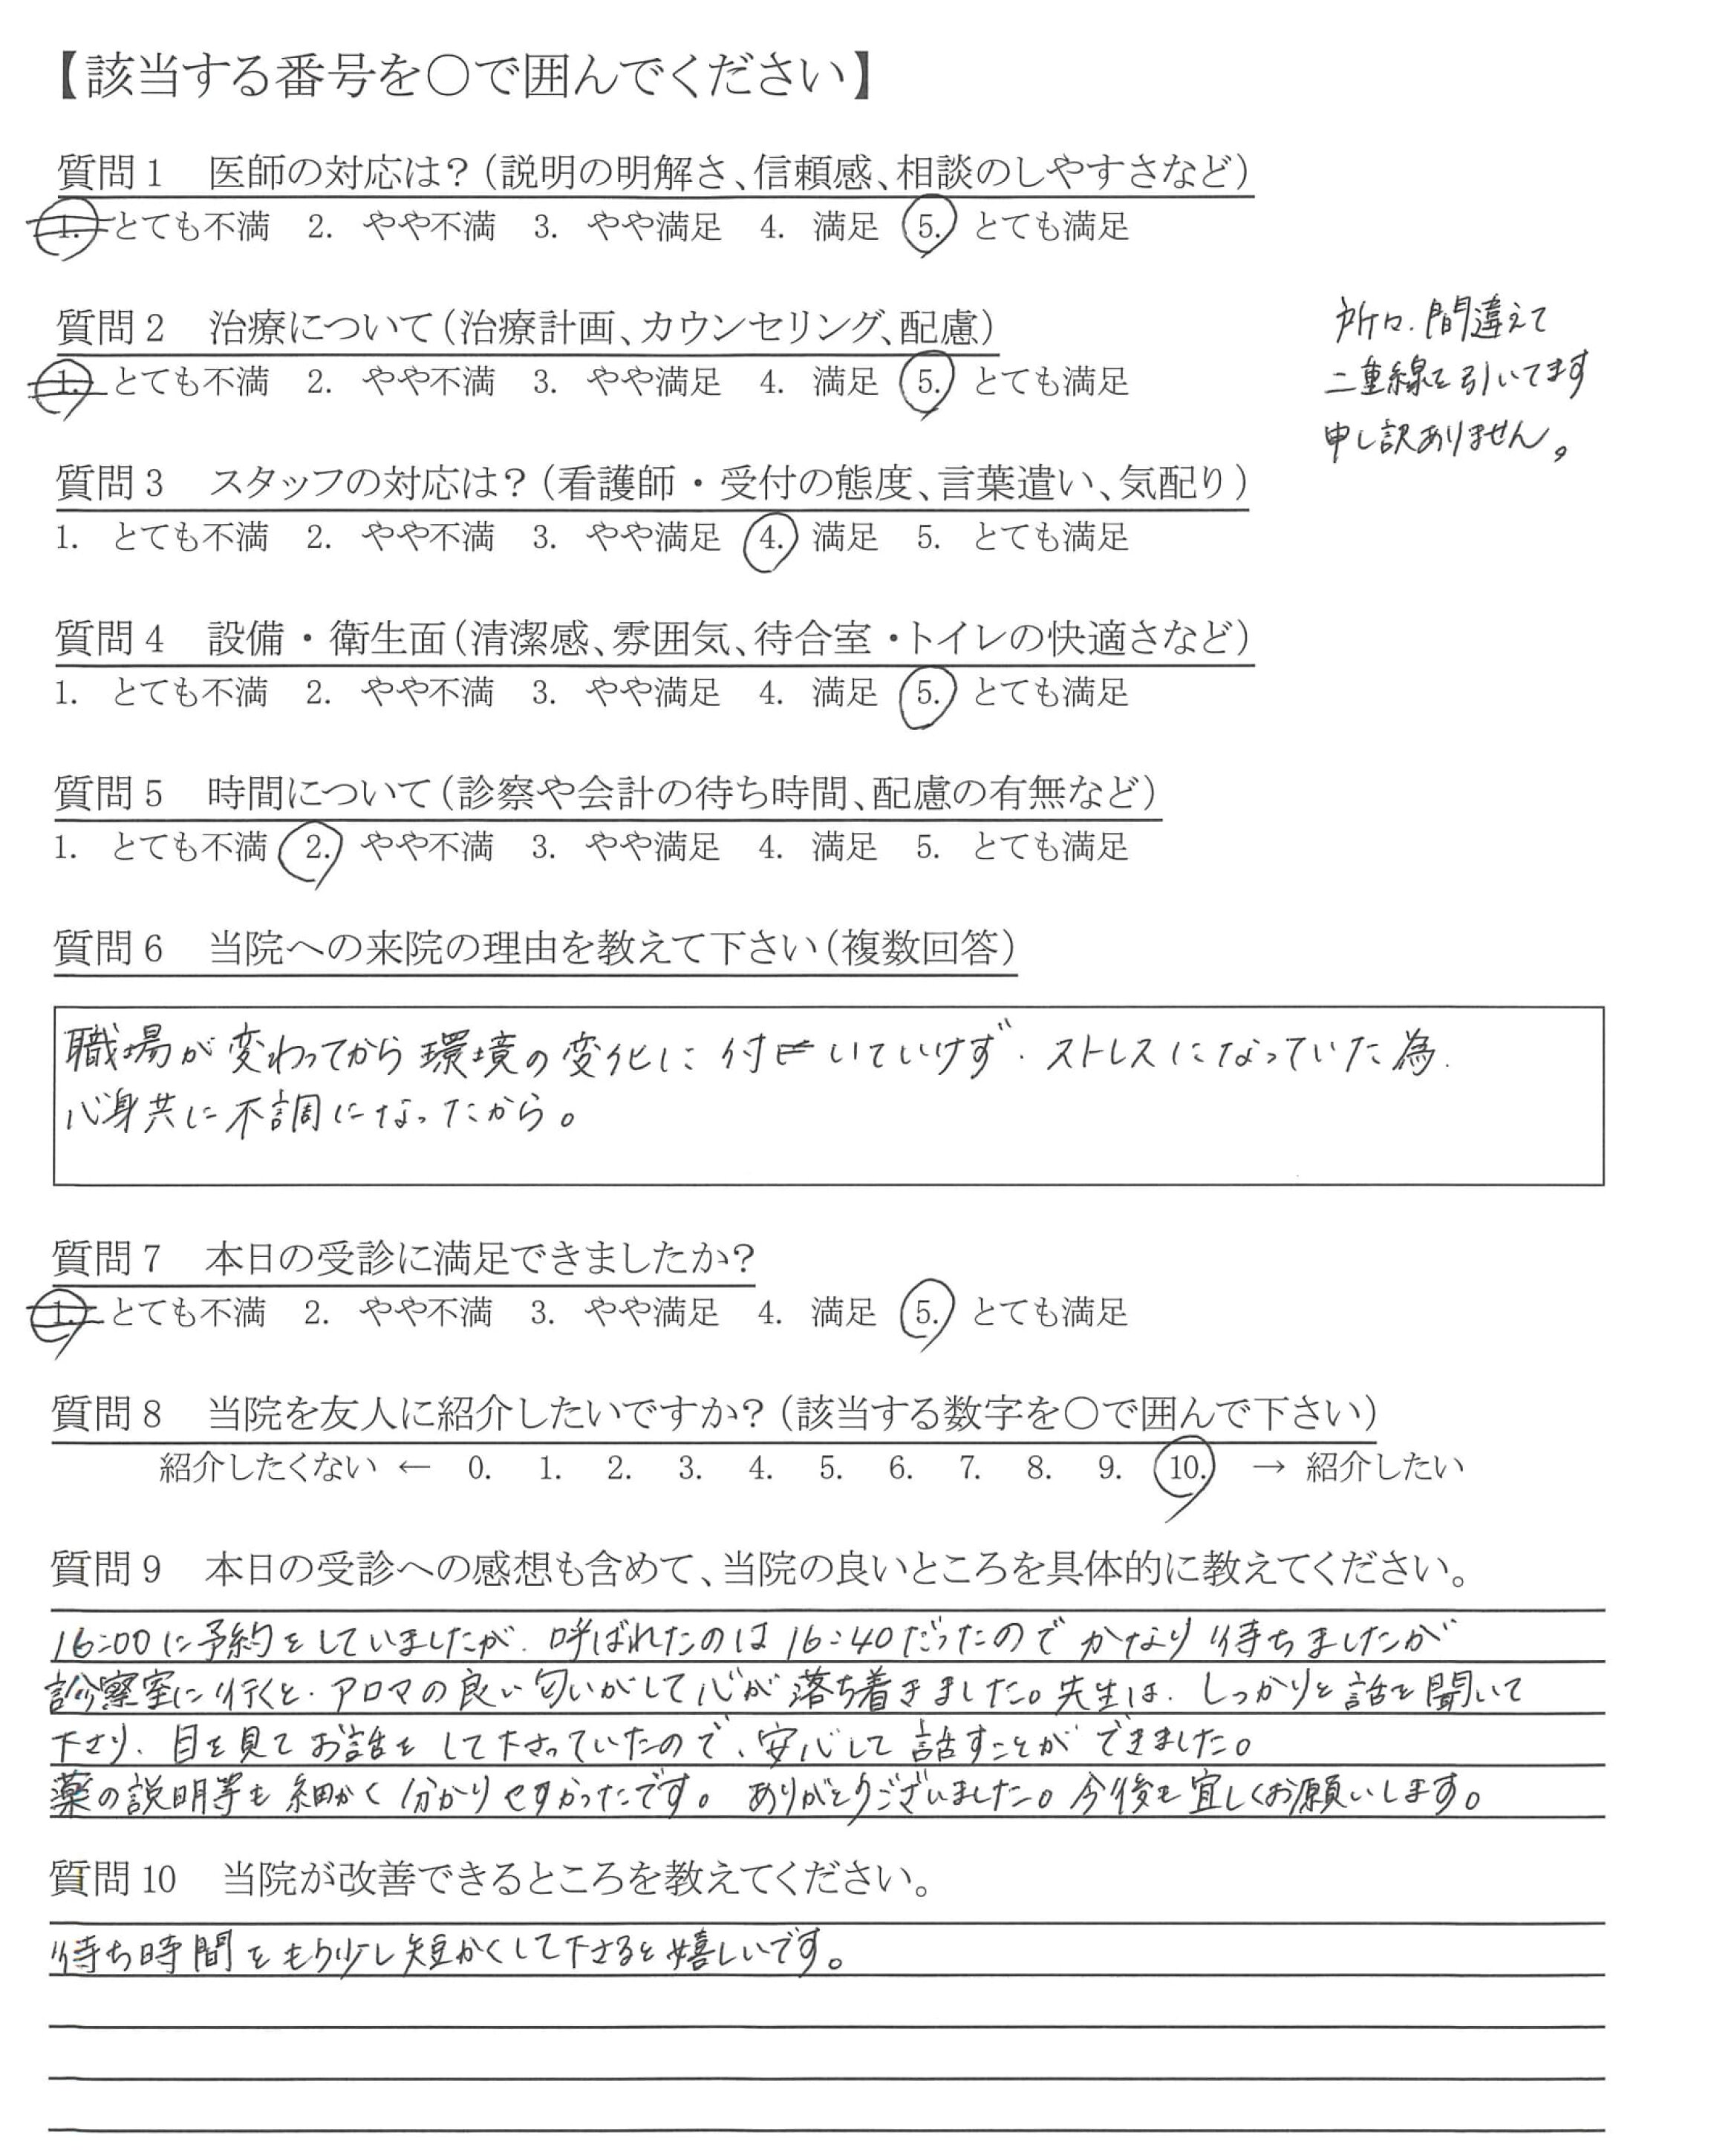 【該当する番号を〇で囲んでください】
質問1 医師の対応は?(説明の明解さ、信頼感、相談のしやすさなど)
1. とても不満 2. やや不満 3. やや満足 4. 満足 5. とても満足
質問2 治療について(治療計画、カウンセリング、配慮)
1. とても不満 2. やや不満 3. やや満足 4. 満足 5. とても満足
所々、間違えて
二重線を引いてます
申し訳ありません。
質問3 スタッフの対応は?(看護師・受付の態度、言葉遣い、気配り)
1. とても不満 2. やや不満 3. やや満足 4. 満足 5. とても満足
質問4 設備・衛生面(清潔感、雰囲気、待合室・トイレの快適さなど)
1. とても不満 2. やや不満 3. やや満足 4. 満足 5. とても満足
質問5 時間について(診察や会計の待ち時間、配慮の有無など)
1. とても不満 2. やや不満 3. やや満足 4. 満足 5. とても満足
質問6 当院への来院の理由を教えて下さい(複数回答)
職場が変わってから環境の変化に付いていけず、ストレスになっていた為、
心身共に不調になったから。
質問7 本日の受診に満足できましたか?
1. とても不満 2. やや不満 3. やや満足 4. 満足 5. とても満足
質問8 当院を友人に紹介したいですか?(該当する数字を〇で囲んで下さい)
紹介したくない ← 0. 1. 2. 3. 4. 5. 6. 7. 8. 9. 10. → 紹介したい
質問9 本日の受診への感想も含めて、当院の良いところを具体的に教えてください。
16:00に予約をしていましたが、呼ばれたのは16:40だったのでかなり待ちましたが
診察室に行くと、アロマの良い匂いがして心が落ち着きました。先生は、しっかりと話を聞いて
下さり、目を見てお話をして下さっていたので、安心して話すことができました。
薬の説明等も細かく分かりやすかったです。ありがとうございました。今後も宜しくお願いします。
質問10 当院が改善できるところを教えてください。
待ち時間をもう少し短かくして下さると嬉しいです。